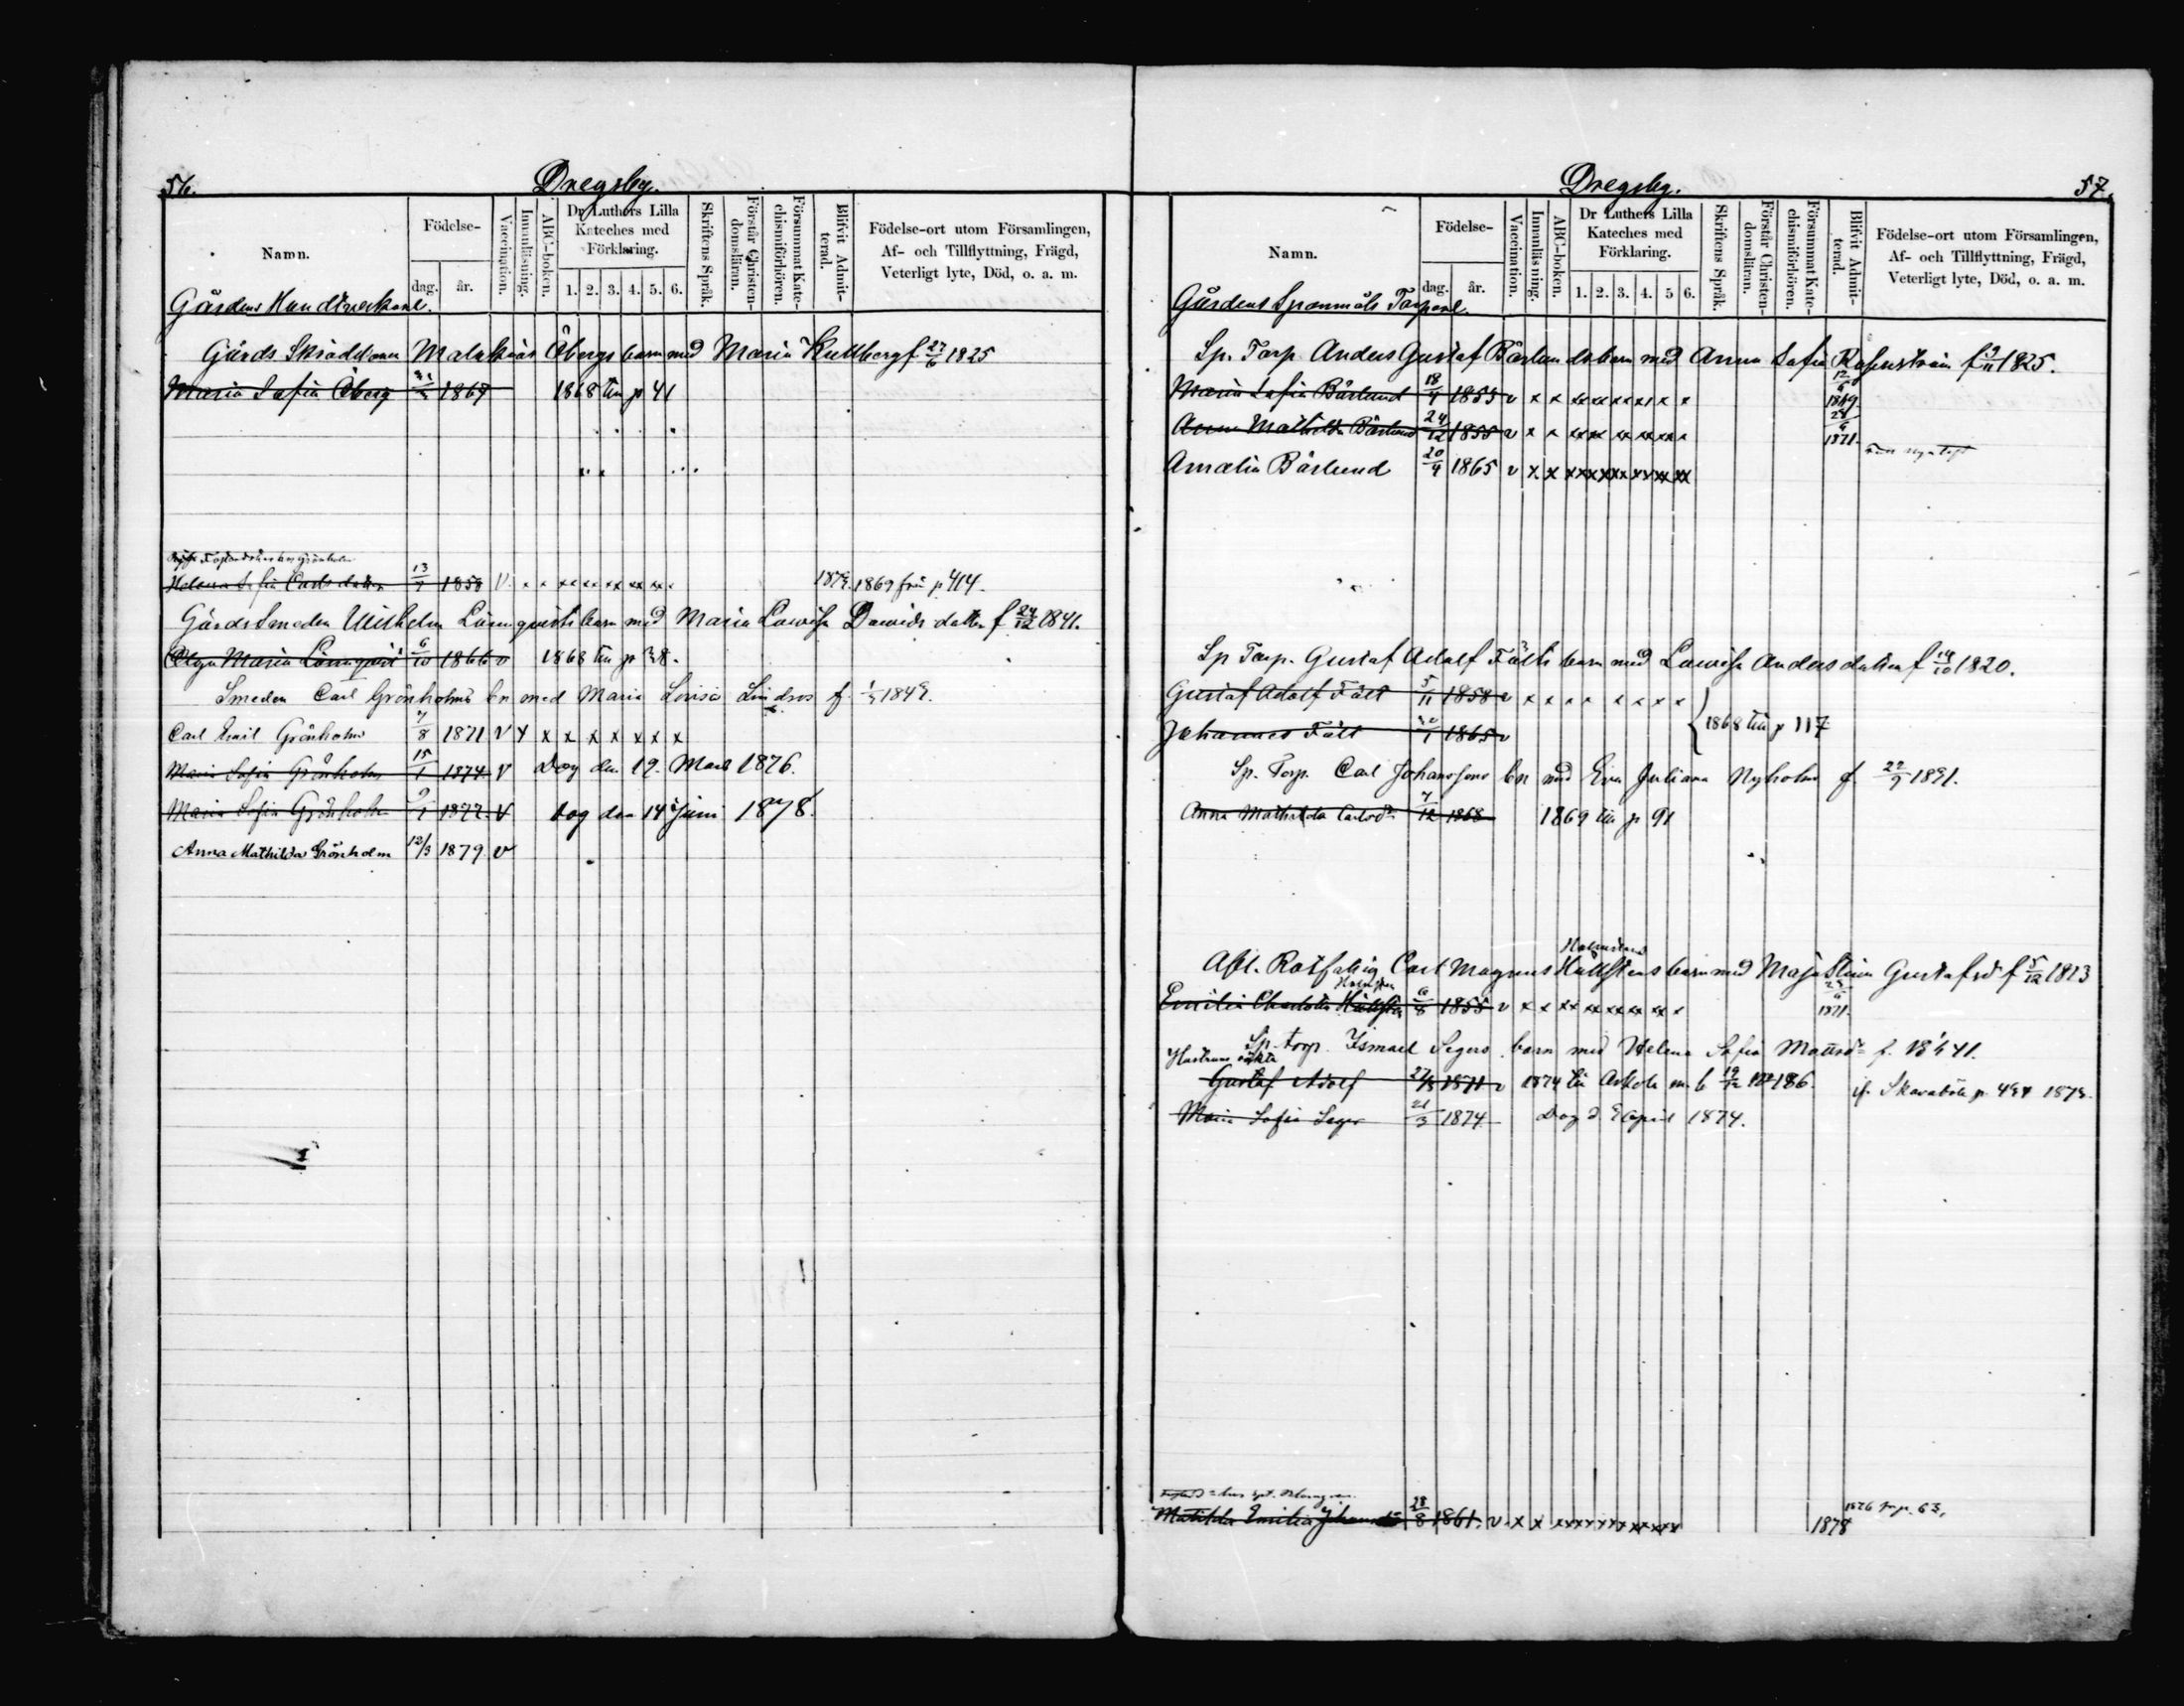 56. Dregsby.
Namn. Födelse- dag. år. Vaccination. Innanläsning. ABC-boken. Dr Luthers Lilla Kateches med Förklaring. 1. 2. 3. 4. 5. 6. Skriftens Språk. Förstår Christen-domsläran. Försummat Kate-chismiförhören. Blifvit Admit-terad. Födelse-ort utom Församlingen, Af- och Tillflyttning, Frägd, Veterligt lyte, Död, o. a. m.
Gårdens Handtverkare.
Gårds Skräddaren Malakias Öbergs barn med Maria Kullberg f 27/6 1825
Maria Sofia Öberg 1867 1868 till p 41
Helena Sofia Carlsdotter 13/7 1858 V. x x xx xx xx xx xx x 1874. 1869 från p 414.
Gårds Smeden Wilhelm Lönnqvists barn med Maria Lovisa Davids dotter f 24/12 1841.
Olga Maria Lönnqvist 6/10 1866 v 1868 till p 38.
Smeden Carl Grönholms bn med Maria Lovisa Lindros f. 1849.
Carl Emil Grönholm 7/8 1871 V x x x x x x x x
Maria Sofia Grönholm 15/1 1874 V Dog den 19. Mars 1876.
Maria Sofia Grönholm 9/1 1877. V dog den 14 Juni 1878.
Anna Mathilda Grönholm 12/3 1879 v
Dregsby. 57.
Namn. Födelse- dag. år. Vaccination. Innanläsning. ABC-boken. Dr Luthers Lilla Kateches med Förklaring. 1. 2. 3. 4. 5 6. Skriftens Språk. Förstår Christen-domsläran. Försummat Kate-chismiförhören. Blifvit Admit-terad. Födelse-ort utom Församlingen, Af- och Tillflyttning, Frägd, Veterligt lyte, Död, o. a. m.
Gårdens Spanmåls Torpare.
Sp. Torp. Anders Gustaf Bärlunds barn med Anna Sofia Rosenström f 9/11 1825.
Maria Sofia Bärlund 18/4 1853 v x x xx xx xx x x x 1869
Anna Mathilda Bärlund 24/12 1855 v x x xx xx xx xx xx x 1871.
Amalia Bärlund 20/4 1865 v x x xx xx xx xx xx xx
Sp Torp. Gustaf Adolf Fälts barn med Lovisa Anders dotter f 14/10 1820.
Gustaf Adolf Fält 5/11 1858 v x x x x x x x x
Johannes Fält 1865 v 1868 till p 117
Sp. Torp. Carl Johanssons bn med Eva Juliana Nyholm f. 22/9 1841.
Anna Mathilda Carlsdr 7/12 1868 1869 till p 91
Holmsten
Afl. Rotfattig Carl Magnus Hällstens barn med Maja Stina Gustafsdr f 5/12 1813
Holmsten
Emilia Charlotta Hällsten 6/8 1855 v x x xx xx xx xx xx x 1871.
Sp. torp. Ismael Segers barn med Helena Sofia Mattsdr f. 18 41.
Hustruns oäkta
Gustaf Adolf 27/3 1871 v 1874 till Askola m. b 19/12 186. if. Skavaböle p 494 1873.
Maria Sofia Seger 21/3 1874 Dog d April 1874.
1876 fr p. 63.
Matilda Emilia 28/8 1861. v x x xx xx xx xx xx xx 1878